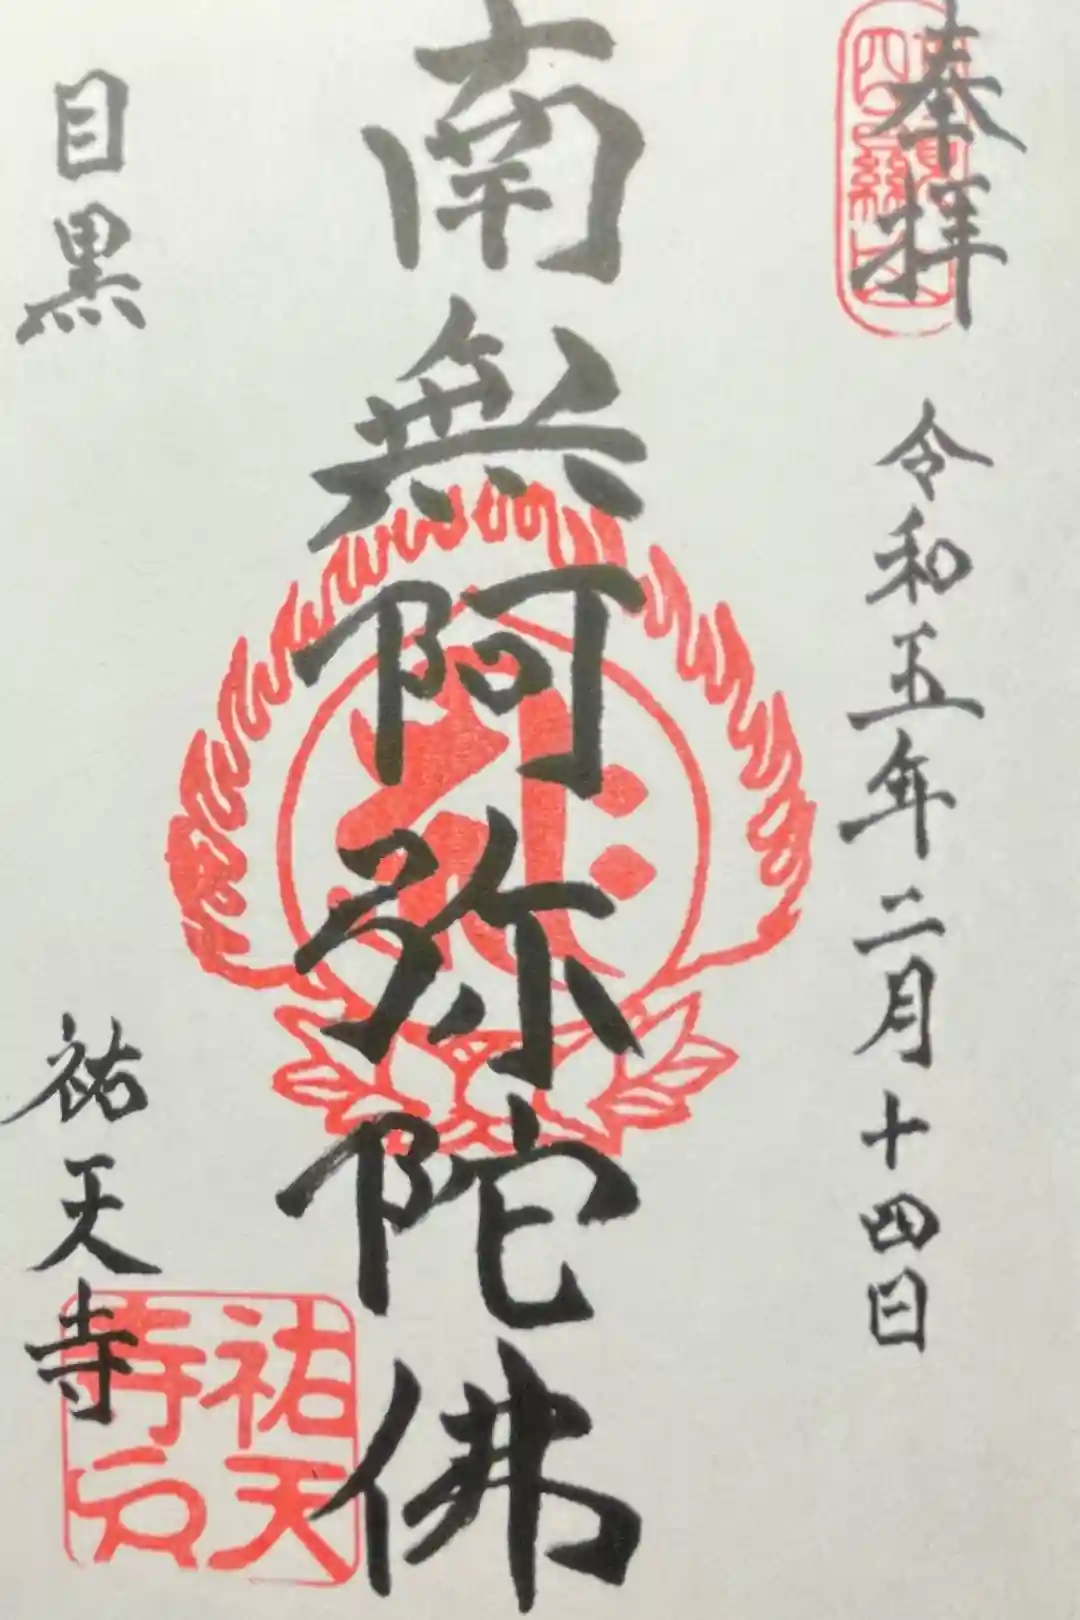 奉拝
令和五年二月十四日
南無阿弥陀佛
目黒
祐天寺
祐天寺